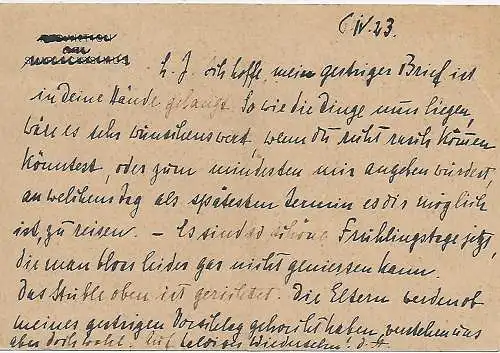 6 IV. 23.
L. J. Ich hoffe, mein gestriger Brief ist
in Deine Hände gelangt. So wie die Dinge nun liegen,
wäre es sehr wünschenswert, wenn du recht rasch kommen
könntest, oder zum mindesten mir angeben würdest,
an welchem Tag als spätesten Termin es dir möglich
ist, zu reisen. – Es sind so schöne Frühlingstage jetzt,
die man blos leider gar nicht geniessen kann.
Das Stüble oben ist gerichtet. Die Eltern werden ob
meines gestrigen Vorschlag gehorcht haben, verstehen uns
aber doch wohl. Auf baldiges Wiedersehn! d. A.